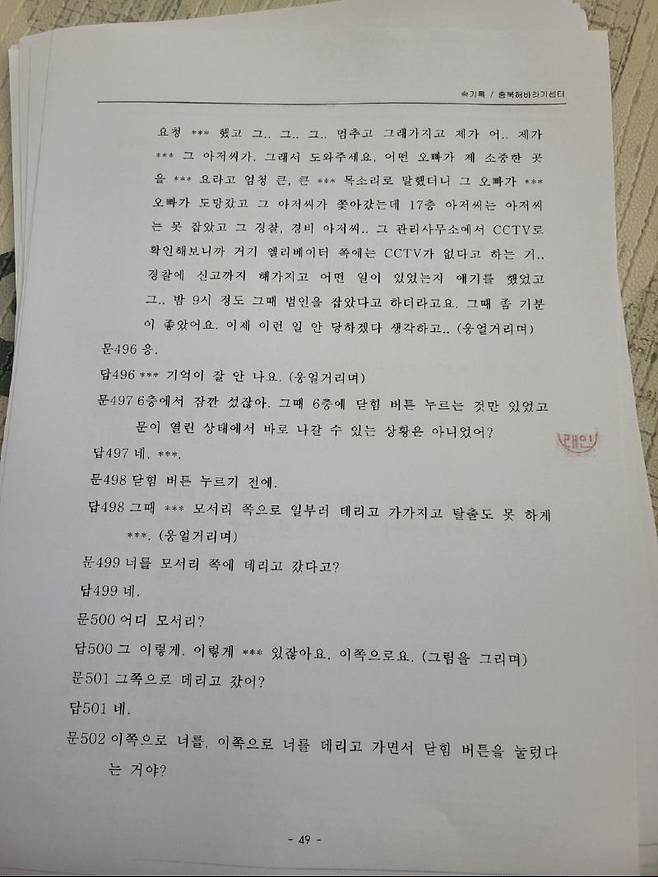 속기록 / 충북해바라기센터
요청 *** 했고 그.. 그.. 그.. 멈추고 그래가지고 제가 어.. 제가
*** 그 아저씨가. 그래서 도와주세요, 어떤 오빠가 제 소중한 곳
을 *** 요라고 엄청 큰, 큰 *** 목소리로 말했더니 그 오빠가 ***
오빠가 도망갔고 그 아저씨가 쫓아갔는데 17층 아저씨는 아저씨
는 못 잡았고 그 경찰, 경비 아저씨.. 그 관리사무소에서 CCTV로
확인해보니까 거기 엘리베이터 쪽에는 CCTV가 없다고 하는 거..
경찰에 신고까지 해가지고 어떤 일이 있었는지 얘기를 했었고
그.. 밤 9시 정도 그때 범인을 잡았다고 하더라고요. 그때 좀 기분
이 좋았어요. 이제 이런 일 안 당하겠다 생각하고.. (웅얼거리며)
문496 응.
답496 *** 기억이 잘 안 나요. (웅얼거리며)
문497 6층에서 잠깐 섰잖아. 그때 6층에 닫힘 버튼 누르는 것만 있었고
문이 열린 상태에서 바로 나갈 수 있는 상황은 아니었어?
답497 네, ***.
문498 닫힘 버튼 누르기 전에.
답498 그때 *** 모서리 쪽으로 일부러 데리고 가가지고 탈출도 못 하게
***. (웅얼거리며)
문499 너를 모서리 쪽에 데리고 갔다고?
답499 네.
문500 어디 모서리?
답500 그 이렇게, 이렇게 *** 있잖아요. 이쪽으로요. (그림을 그리며)
문501 그쪽으로 데리고 갔어?
답501 네.
문502 이쪽으로 너를, 이쪽으로 너를 데리고 가면서 닫힘 버튼을 눌렀다
는 거야?
- 49 -